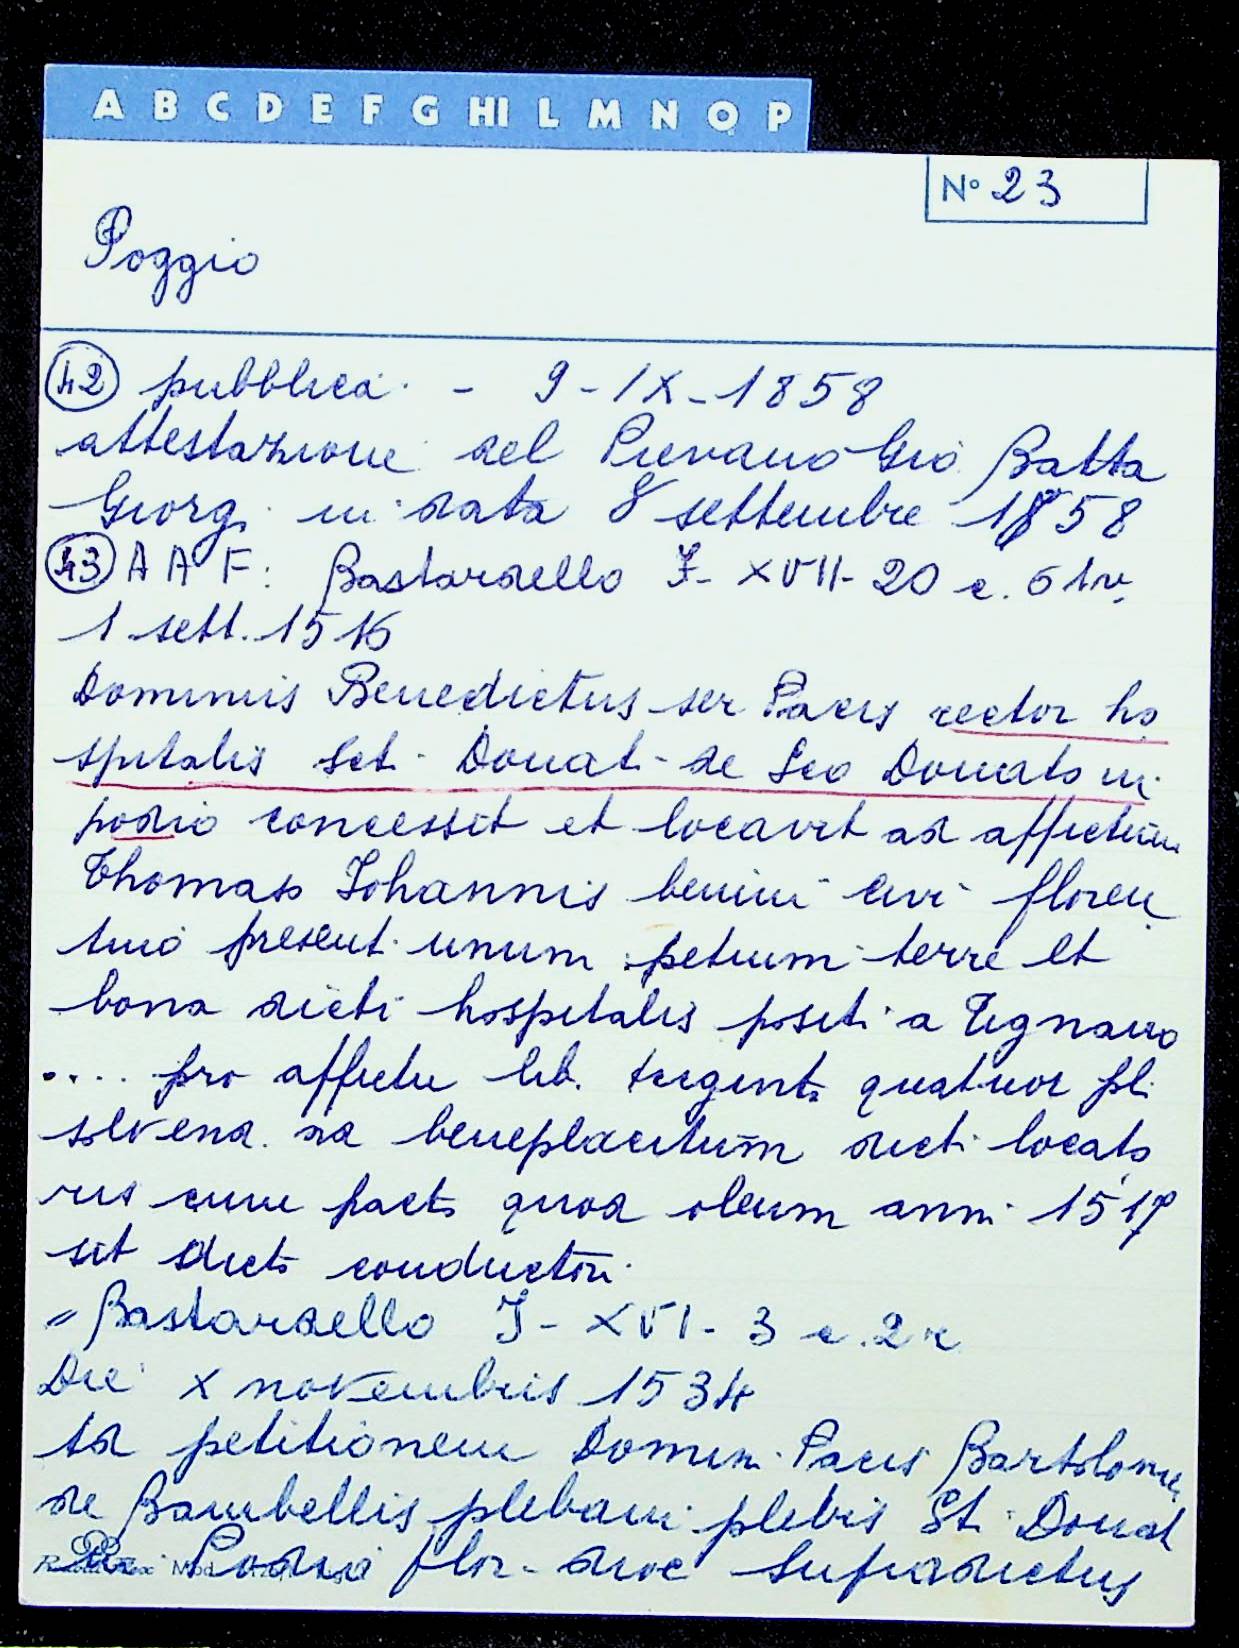 A B C D E F G HI L M N O P
N° 23
Poggio
42 pubblica. - 9-IX-1858
attestazione del Pievano Gio Batta
Giorgi in data 8 settembre 1858
43 A A F: Bastardello I- XVII- 20 c. 61v.
1 sett. 1516
Dominus Benedictus ser Pacis rector ho
spitalis Scti Donati de Sco Donato in
podio concessit et locavit ad affictum
Thomaso Johannis benini civi floren
tino presenti unum petium terre et
bona dicti hospitalis positi a Tignano
.... pro affictu lib. triginta quatuor pl.
solvend. ad beneplacitum dicti locato
ris cum pacto quod oleum anni 1517
sit dicto conductori.
" Bastardello I- XVI- 3 c. 2r
Die X novembris 1534
Ad petitionem Domini Pacis Bartolomei
de Bambellis plebani plebis Sti Donati
in Podio flor. dioc supradictus